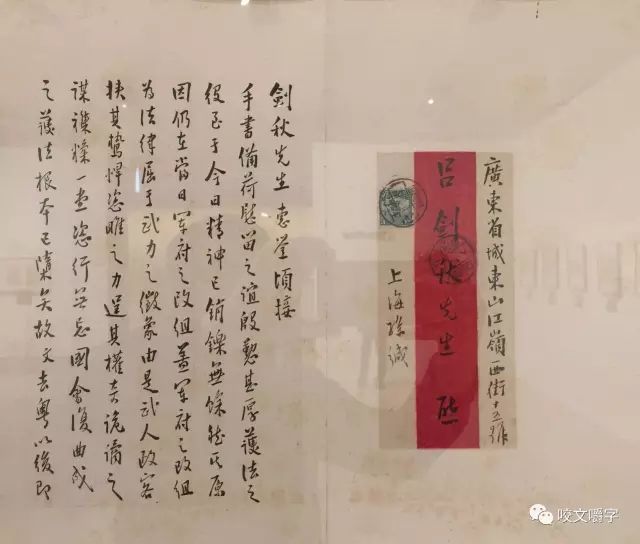 廣東省城東山江嶺西街十號
呂劍秋先生 啟
上海孫緘
劍秋先生惠鑒頃接
手書備荷慰留之誼殷懃甚厚護法之
役至于今日精神已銷鑠無餘然其原
因仍在當日軍府之改組蓋軍府之改組
為法律屈于武力之徵象由是武人政客
挾其鷙悍恣睢之力逞其權奇詭譎之
謀襍糅一堂恣行無忌國會復曲成
之護法根本已隳矣故文去粵以後即
咬文嚼字